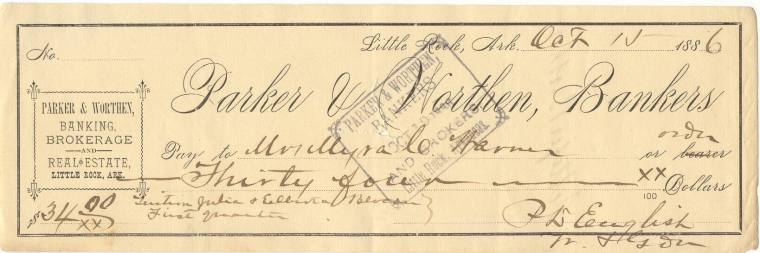 No. Little Rock, Ark. Oct 15 1886
Parker & Worthen, Bankers
PARKER & WORTHEN,
BANKING,
BROKERAGE
AND
REAL ESTATE,
LITTLE ROCK, ARK.
PARKER & WORTHEN
BANKERS
AND BROKERS
LITTLE ROCK,
Pay to Mrs Myra C. Warner or bearer order
Thirty four XX/100 Dollars
$34 00/XX
Tuition Julia &
First quarter
P D English